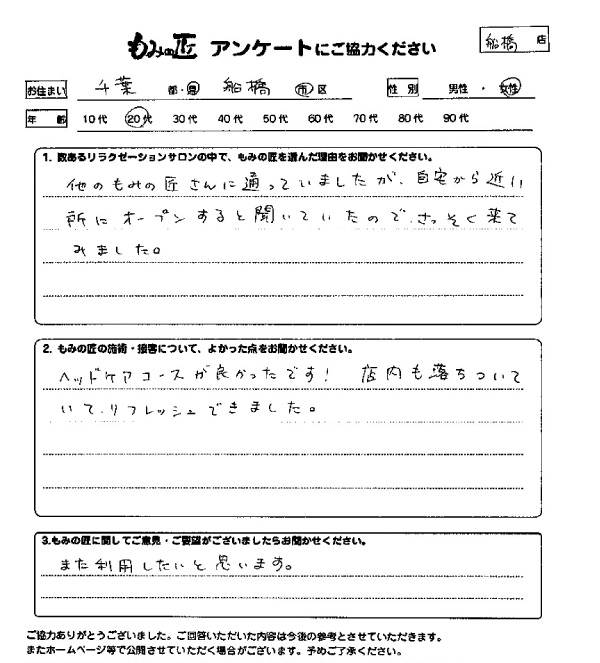 もみの匠 アンケートにご協力ください 船橋 店
お住まい 千葉 都・県 船橋 市区 性別 男性・女性
年齢 10代 20代 30代 40代 50代 60代 70代 80代 90代
1. 数あるリラクゼーションサロンの中で、もみの匠を選んだ理由をお聞かせください。
他のもみの匠さんに通っていましたが、自宅から近い
所にオープンすると聞いていたので、さっそく来て
みました。
2. もみの匠の施術・接客について、よかった点をお聞かせください。
ヘッドケアコースが良かったです! 店内も落ちついて
いて、リフレッシュできました。
3.もみの匠に関してご意見・ご要望がございましたらお聞かせください。
また利用したいと思います。
ご協力ありがとうございました。ご回答いただいた内容は今後の参考とさせていただきます。
またホームページ等で公開させていただく場合がございます。予めご了承ください。